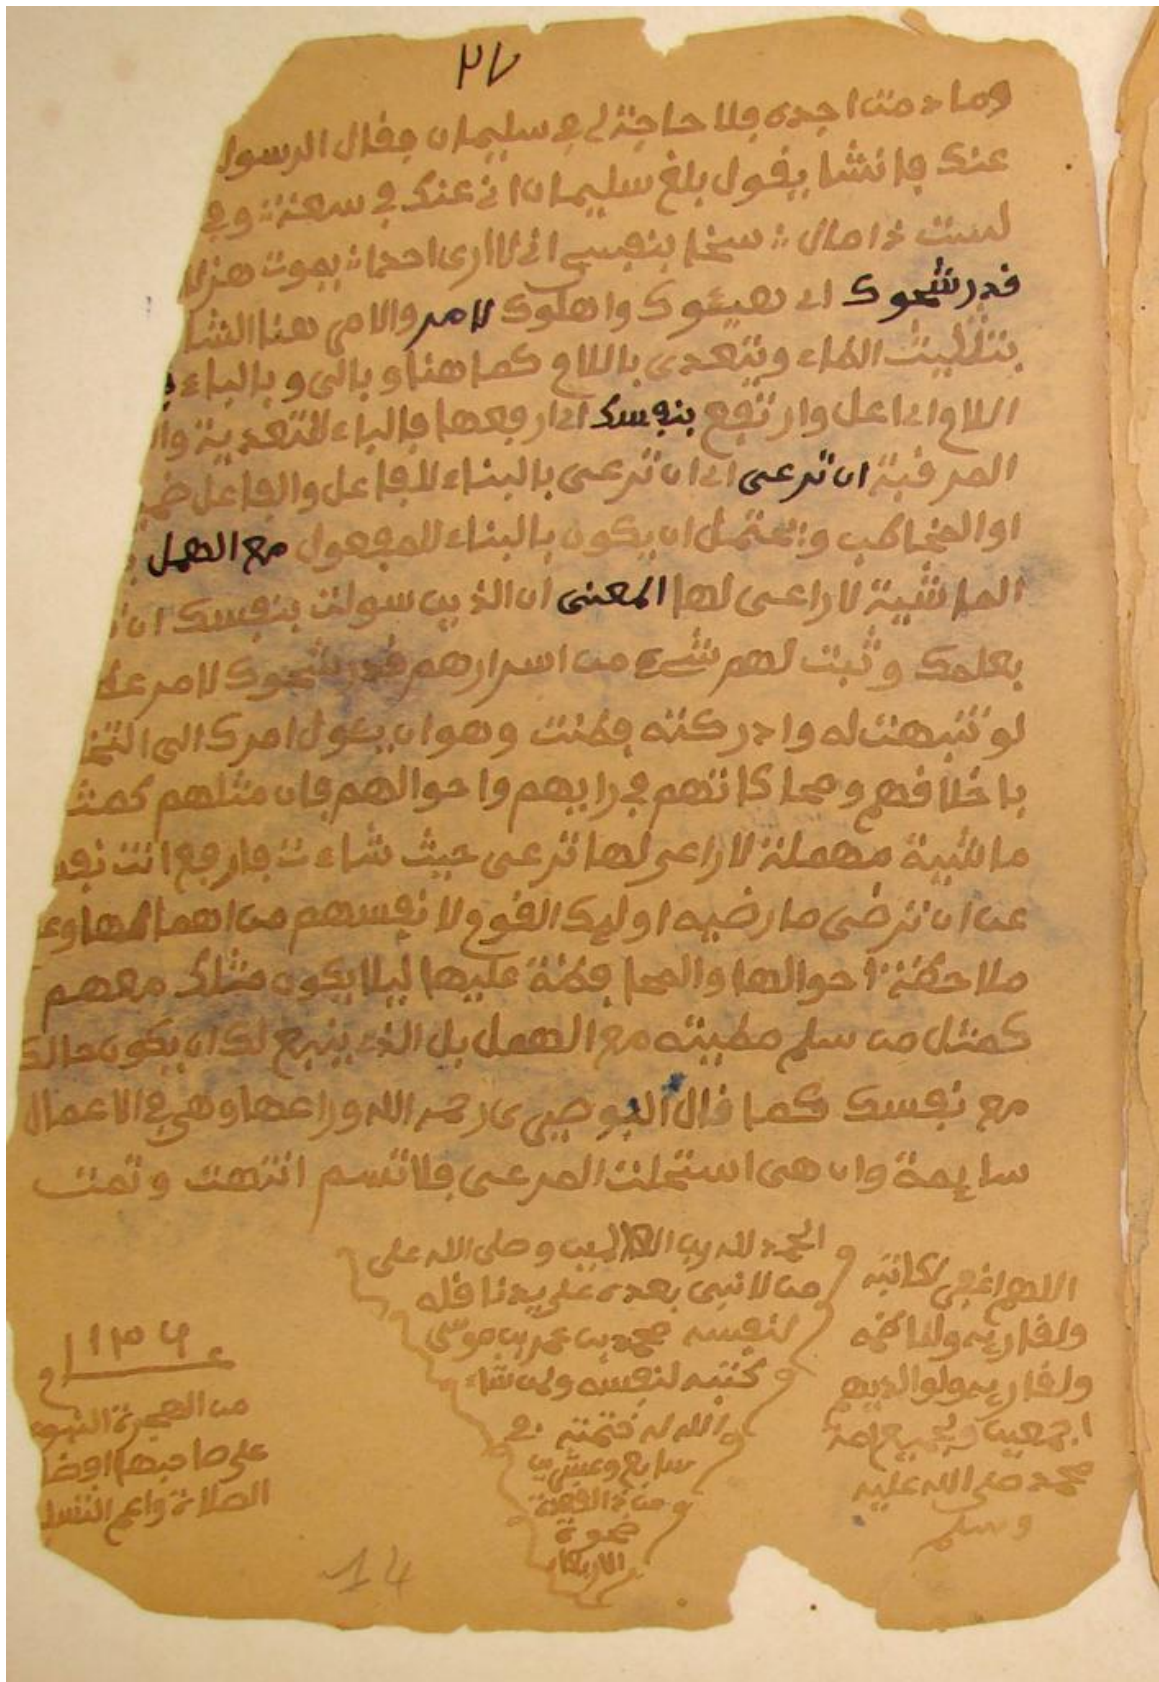 ٢٧
وما دمت اجده فلا حاجة لي في سليمان فقال الرسول
عنك فانشا يقول بلغ سليمان اني عنك في سعة وفي
لست ذا مال سخا بنفسي اني لا ارى احدا يموت هزلا
قد رشحوك اي هيئوك واهلوك لامر والامر هنا الشا
بتثليث الهاء ويتعدى باللام كما هنا وبالى وبالباء
اللام اي اعل وارتفع بنفسك اي ارفعها فالباء للتعدية
المرقبة ان ترعى اي ان ترعى بالبناء للفاعل والفاعل ضمير
او المخاطب ويحتمل ان يكون بالبناء للمفعول مع الهمل
الماشية لا راعى لها المعنى ان الذين سولت بنفسك ان
بعلمك وثبت لهم شيء من اسرارهم قد رشحوك لامر
لو تنبهت له وادركته فطنت وهو ان يئول امرك الى
باخلافهم ومحاكاتهم في رايهم واحوالهم فان مثلهم كمثل
ماشية مهملة لا راعي لها ترعى حيث شاءت فارفع انت
عن ان ترضى ما رضيه اوليك القوم لا نفسهم من اهمالها
ملاحظة احوالها والمحافظة عليها ليلا يكون مثلك معهم
كمثل من سلم مطيته مع الهمل بل الذي ينبغي لك ان يكون حالك
مع نفسك كما قال البوصيري رحمه الله وراعها وهي في الاعمال
سايمة وان هي استحلت المرعى فلا تسم انتهت وتمت
و الحمد لله رب العالمين وصلى الله على
من لا نبي بعده على يد ناقله
لنفسه محمد بن عمر بن موسى
كتبه لنفسه ولمن شاء
الله له ختمته في
سابع وعشرين
من ذي القعدة
ضحوة
الاربعاء
اللهم اغفر لكاتبه
ولقاريه ولناظمه
ولقاريه ولوالديهم
اجمعين ولجميع امة
محمد صلى الله عليه
وسلم
من الهجرة النبوية
على صاحبها افضل
الصلاة واعم
14